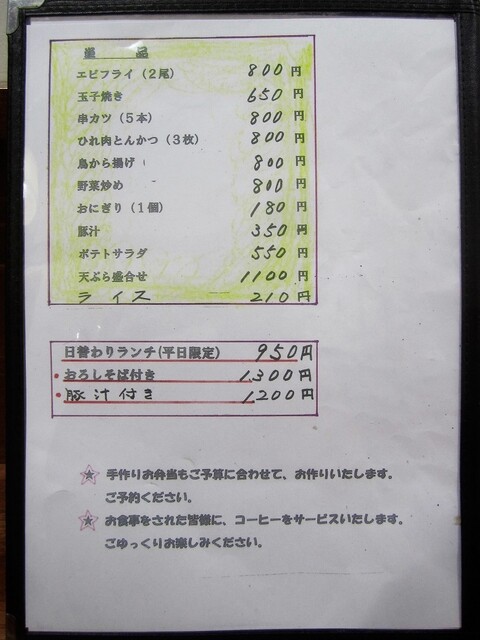 単品
エビフライ（２尾） 800円
玉子焼き 650円
串カツ（５本） 800円
ひれ肉とんかつ（３枚） 800円
鳥から揚げ 800円
野菜炒め 800円
おにぎり（１個） 180円
豚汁 350円
ポテトサラダ 550円
天ぷら盛合せ 1100円
ライス 210円
日替わりランチ(平日限定) 950円
・おろしそば付き 1,300円
・豚汁付き 1,200円
手作りお弁当もご予算に合わせて、お作りいたします。
ご予約ください。
お食事をされた皆様に、コーヒーをサービスいたします。
ごゆっくりお楽しみください。